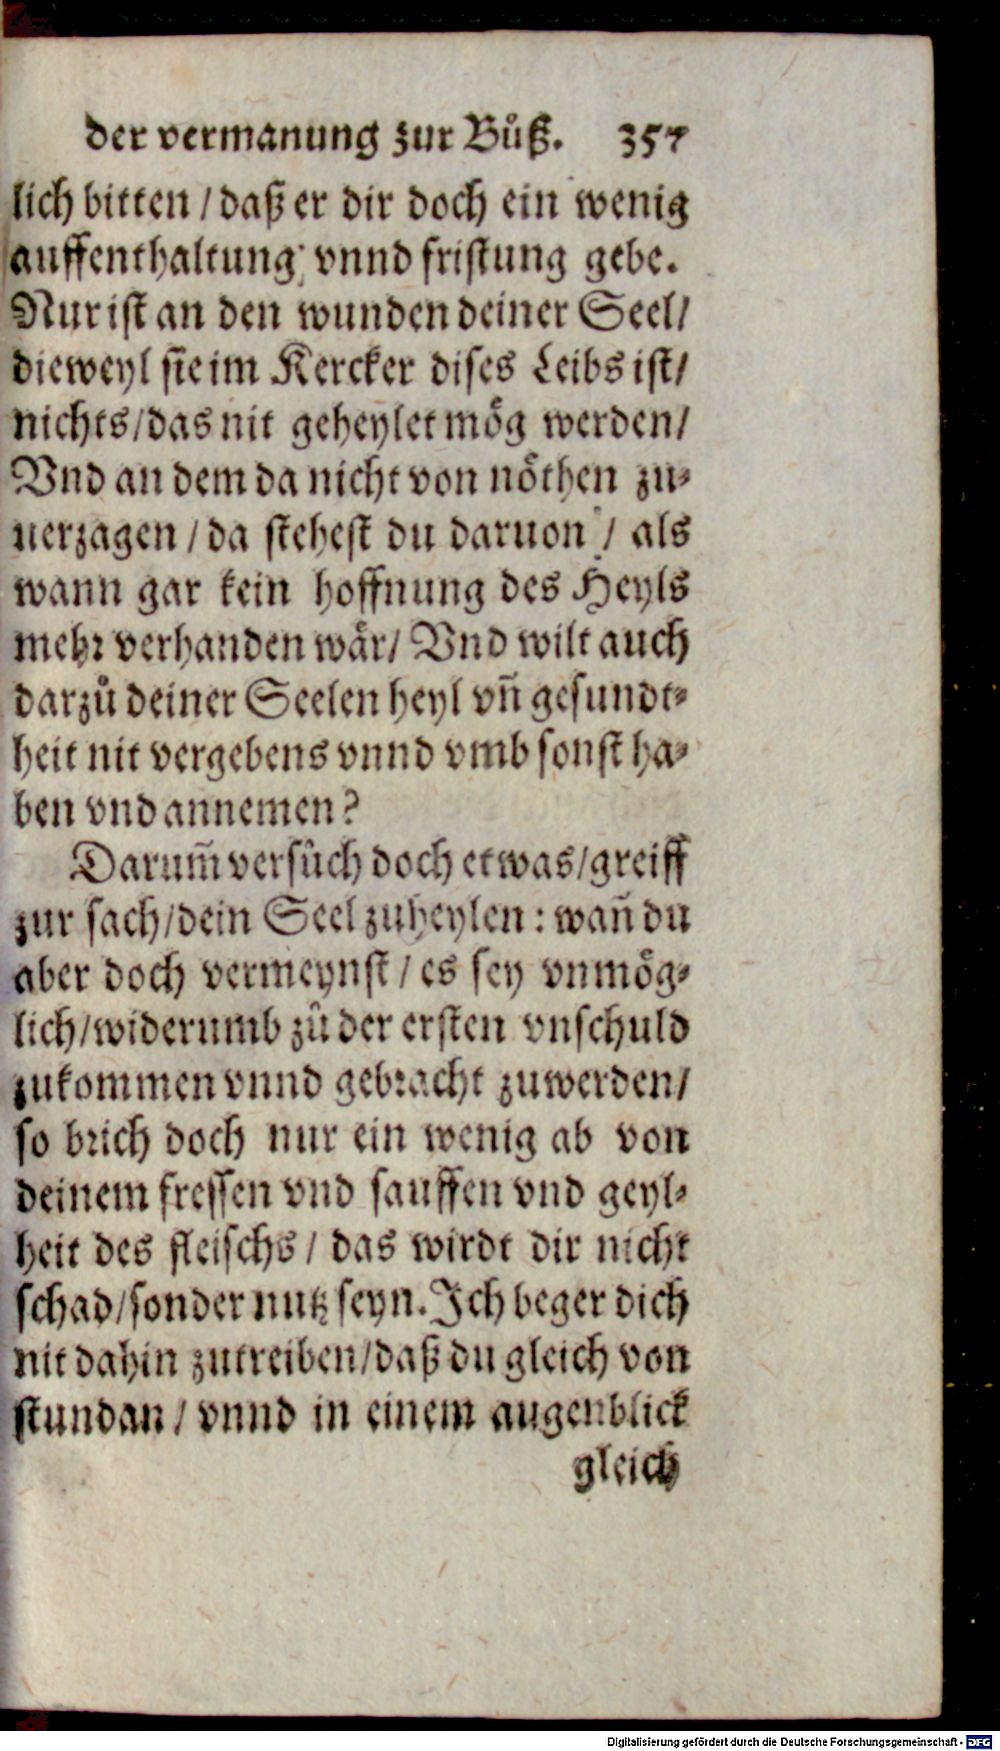 der vermanung zur Bůß. 357
lich bitten / daß er dir doch ein wenig
auffenthaltung vnnd fristung gebe.
Nur ist an den wunden deiner Seel /
dieweyl sie im Kercker dises Leibs ist /
nichts / das nit geheylet mög werden /
Vnd an dem da nicht von nöthen zu-
uerzagen / da stehest du daruon / als
wann gar kein hoffnung des Heyls
mehr verhanden wår / Vnd wilt auch
darzů deiner Seelen heyl vñ gesundt-
heit nit vergebens vnnd vmb sonst ha-
ben vnd annemen?
Darum̃ versůch doch etwas / greiff
zur sach / dein Seel zuheylen: wañ du
aber doch vermeynst / es sey vnmög-
lich / widerumb zů der ersten vnschuld
zukommen vnnd gebracht zuwerden /
so brich doch nur ein wenig ab von
deinem fressen vnd sauffen vnd geyl-
heit des fleischs / das wirdt dir nicht
schad / sonder nutz seyn. Ich beger dich
nit dahin zutreiben / daß du gleich von
stundan / vnnd in einem augenblick
gleich
Digitalisierung gefördert durch die Deutsche Forschungsgemeinschaft - DFG